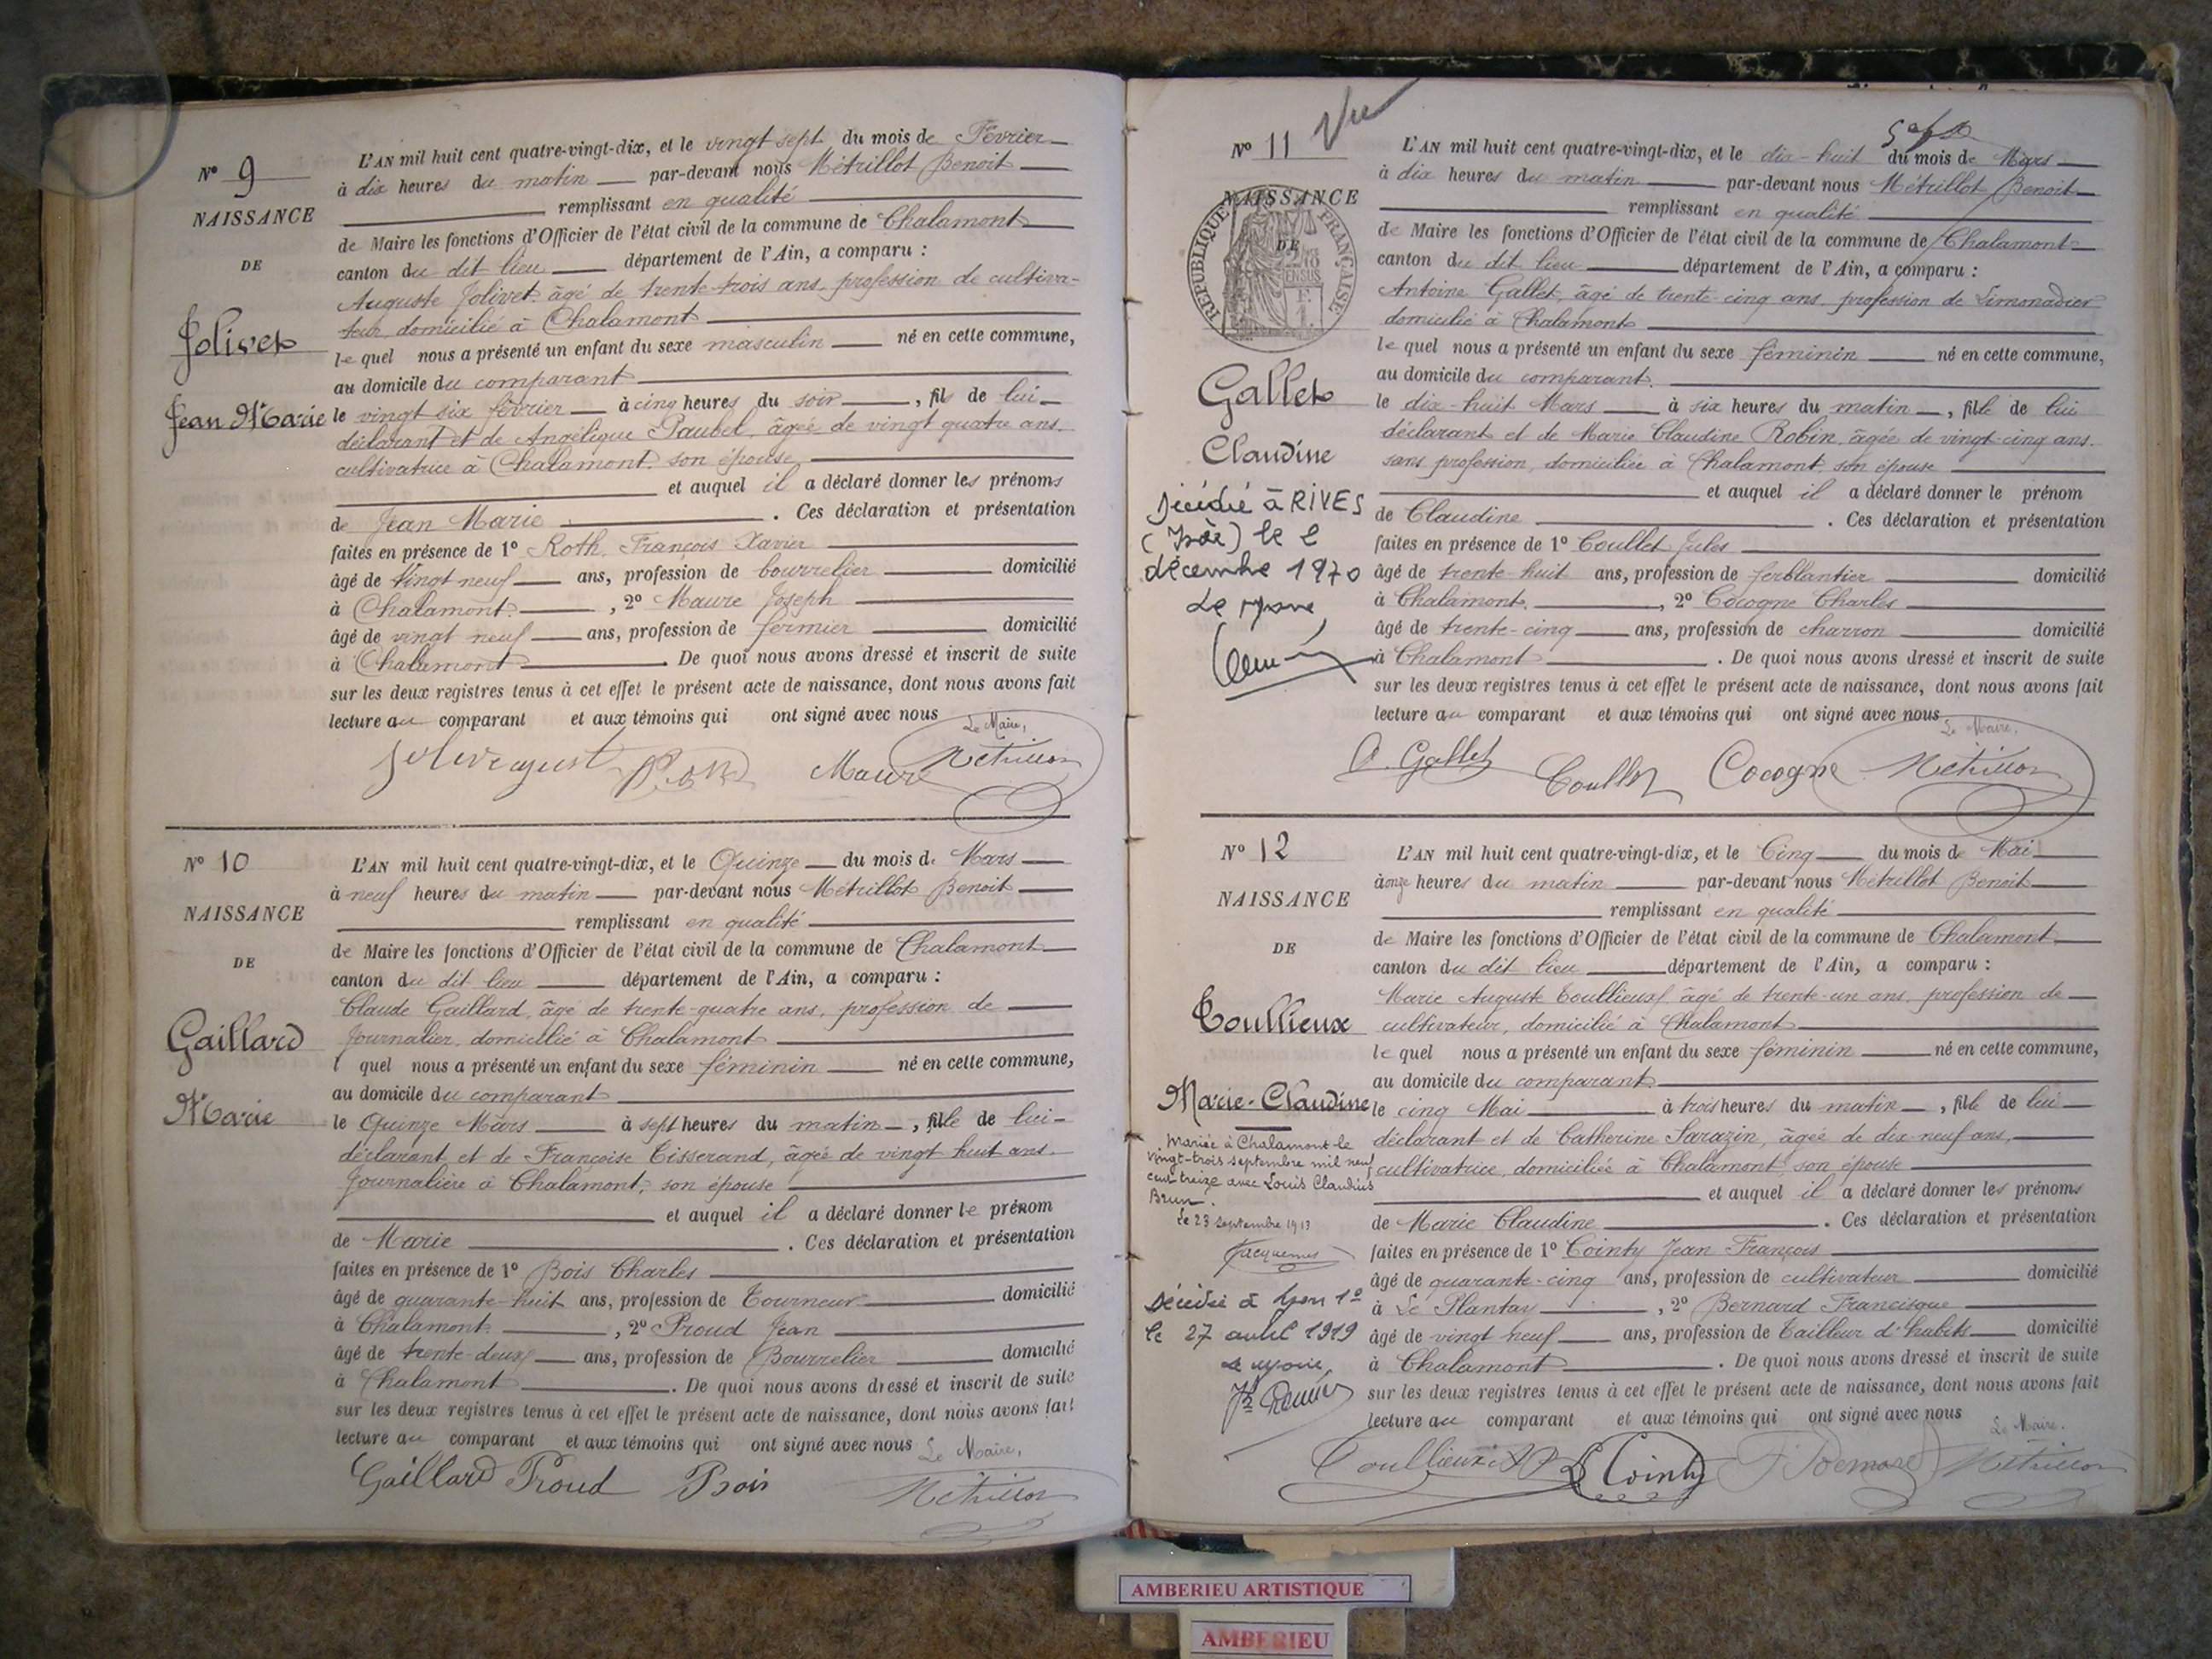 Nº 9
NAISSANCE
DE
Jolivet
Jean Marie
L'AN mil huit cent quatre-vingt-dix, et le vingt sept du mois de Février
à dix heures du matin par-devant nous Métrillot Benoit
remplissant en qualité
de Maire les fonctions d'Officier de l'état civil de la commune de Chalamont
canton du dit lieu département de l'Ain, a comparu :
Auguste Jolivet âgé de trente-trois ans, profession de cultiva-
teur domicilié à Chalamont
lequel nous a présenté un enfant du sexe masculin né en cette commune,
au domicile du comparant
le vingt six février à cinq heures du soir, fils de lui
déclarant et de Angélique Paubel, âgée de vingt quatre ans.
cultivatrice à Chalamont son épouse
et auquel il a déclaré donner les prénoms
de Jean Marie. Ces déclaration et présentation
faites en présence de 1º Roth, François Xavier
âgé de vingt neuf ans, profession de bourrelier domicilié
à Chalamont, 2º Maure Joseph
âgé de vingt neuf ans, profession de fermier domicilié
à Chalamont. De quoi nous avons dressé et inscrit de suite
sur les deux registres tenus à cet effet le présent acte de naissance, dont nous avons fait
lecture au comparant et aux témoins qui ont signé avec nous
Le Maire,
Maure Métrillot
Nº 10
NAISSANCE
DE
Gaillard
Marie
L'AN mil huit cent quatre-vingt-dix, et le Quinze du mois de Mars
à neuf heures du matin par-devant nous Métrillot Benoit
remplissant en qualité
de Maire les fonctions d'Officier de l'état civil de la commune de Chalamont
canton du dit lieu département de l'Ain, a comparu :
Claude Gaillard, âgé de trente-quatre ans, profession de
Journalier, domicilié à Chalamont
l quel nous a présenté un enfant du sexe féminin né en cette commune,
au domicile du comparant
le Quinze Mars à sept heures du matin, fille de lui-
déclarant, et de Françoise Tisserand, âgée de vingt huit ans.
Journalière à Chalamont, son épouse
et auquel il a déclaré donner le prénom
de Marie. Ces déclaration et présentation
faites en présence de 1º Bois Charles
âgé de quarante-huit ans, profession de Tourneur domicilié
à Chalamont, 2º Proud Jean
âgé de trente-deux ans, profession de Bourrelier domicilié
à Chalamont. De quoi nous avons dressé et inscrit de suite
sur les deux registres tenus à cet effet le présent acte de naissance, dont nous avons fait
lecture au comparant et aux témoins qui ont signé avec nous Le Maire,
Gaillard Proud Bois Métrillot
Nº 11 Vu
NAISSANCE
DE
REPUBLIQUE FRANÇAISE
Gallet
Claudine
Décédé à RIVES
(Isère) le 2
décembre 1970
Le Maire
L'AN mil huit cent quatre-vingt-dix, et le dix-huit du mois de Mars
à dix heures du matin par-devant nous Métrillot Benoit
remplissant en qualité
de Maire les fonctions d'Officier de l'état civil de la commune de Chalamont
canton du dit lieu département de l'Ain, a comparu :
Antoine Gallet, âgé de trente-cinq ans, profession de Limonadier
domicilié à Chalamont
lequel nous a présenté un enfant du sexe féminin né en cette commune,
au domicile du comparant.
le dix-huit Mars à six heures du matin, fille de lui
déclarant et de Marie Claudine Robin, âgée de vingt-cinq ans.
sans profession, domiciliée à Chalamont, son épouse
et auquel il a déclaré donner le prénom
de Claudine. Ces déclaration et présentation
faites en présence de 1º Coullet Jules
âgé de trente-huit ans, profession de ferblantier domicilié
à Chalamont, 2º Cocogne Charles
âgé de trente-cinq ans, profession de charron domicilié
à Chalamont. De quoi nous avons dressé et inscrit de suite
sur les deux registres tenus à cet effet le présent acte de naissance, dont nous avons fait
lecture au comparant et aux témoins qui ont signé avec nous
Le Maire,
A. Gallet Coullet Cocogne Métrillot
Nº 12
NAISSANCE
DE
Toullieux
Marie-Claudine
Mariée à Chalamont le
vingt-trois septembre mil neuf
cent treize avec Louis Claudius
Brun.
Le 23 septembre 1913
Décédée à Lyon 1º
le 27 avril 1919
Le Maire,
L'AN mil huit cent quatre-vingt-dix, et le Cinq du mois de Mai
à onze heures du matin par-devant nous Métrillot Benoit
remplissant en qualité
de Maire les fonctions d'Officier de l'état civil de la commune de Chalamont
canton du dit lieu département de l'Ain, a comparu :
Marie Auguste Toullieux, âgé de trente-un ans, profession de
cultivateur, domicilié à Chalamont
lequel nous a présenté un enfant du sexe féminin né en cette commune,
au domicile du comparant
le cinq Mai à trois heures du matin, fille de lui
déclarant et de Catherine Sarazin, âgée de dix-neuf ans,
cultivatrice, domiciliée à Chalamont son épouse
et auquel il a déclaré donner les prénoms
de Marie Claudine. Ces déclaration et présentation
faites en présence de 1º Cointy Jean François
âgé de quarante-cinq ans, profession de cultivateur domicilié
à Le Plantay, 2º Bernard Francisque
âgé de vingt neuf ans, profession de Tailleur d'habits domicilié
à Chalamont. De quoi nous avons dressé et inscrit de suite
sur les deux registres tenus à cet effet le présent acte de naissance, dont nous avons fait
lecture au comparant et aux témoins qui ont signé avec nous
Le Maire.
Toullieux Cointy Bernard Métrillot
AMBERIEU ARTISTIQUE
AMBERIEU